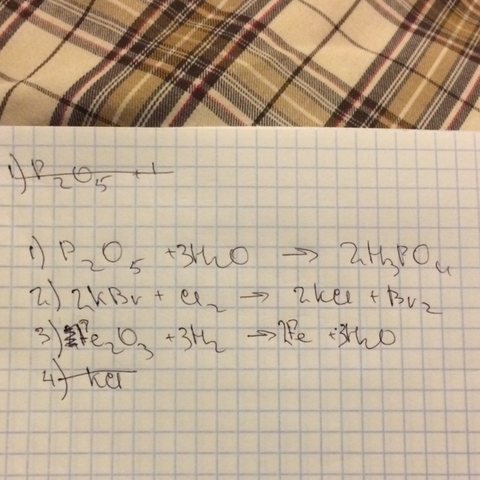 1) P₂O₅ + 1
1) P₂O₅ + 3H₂O → 2H₃PO₄
2) 2KBr + Cl₂ → 2KCl + Br₂
3) Fe₂O₃ + 3H₂ → 2Fe + 3H₂O
4) KCl